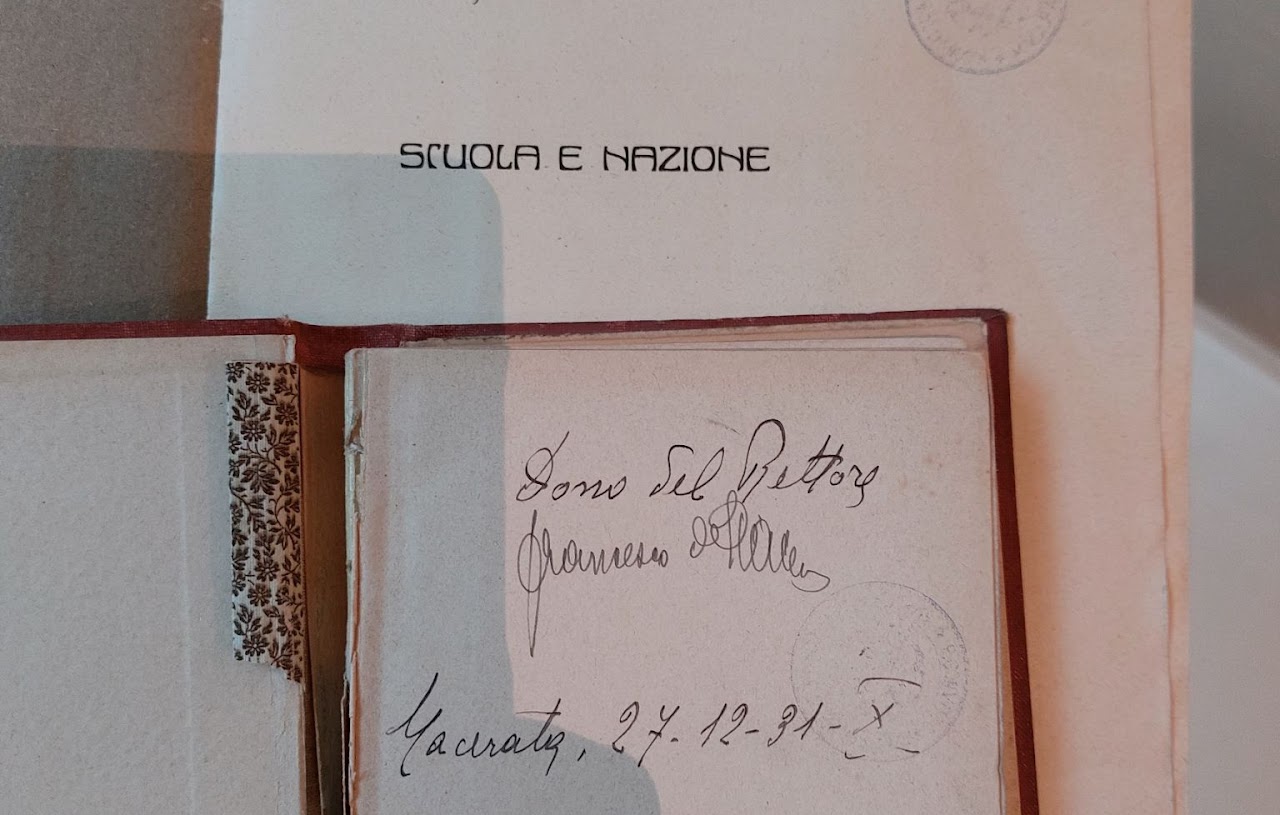 SCUOLA E NAZIONE
Dono del Rettore
Francesco
Macerata, 27-12-31-X